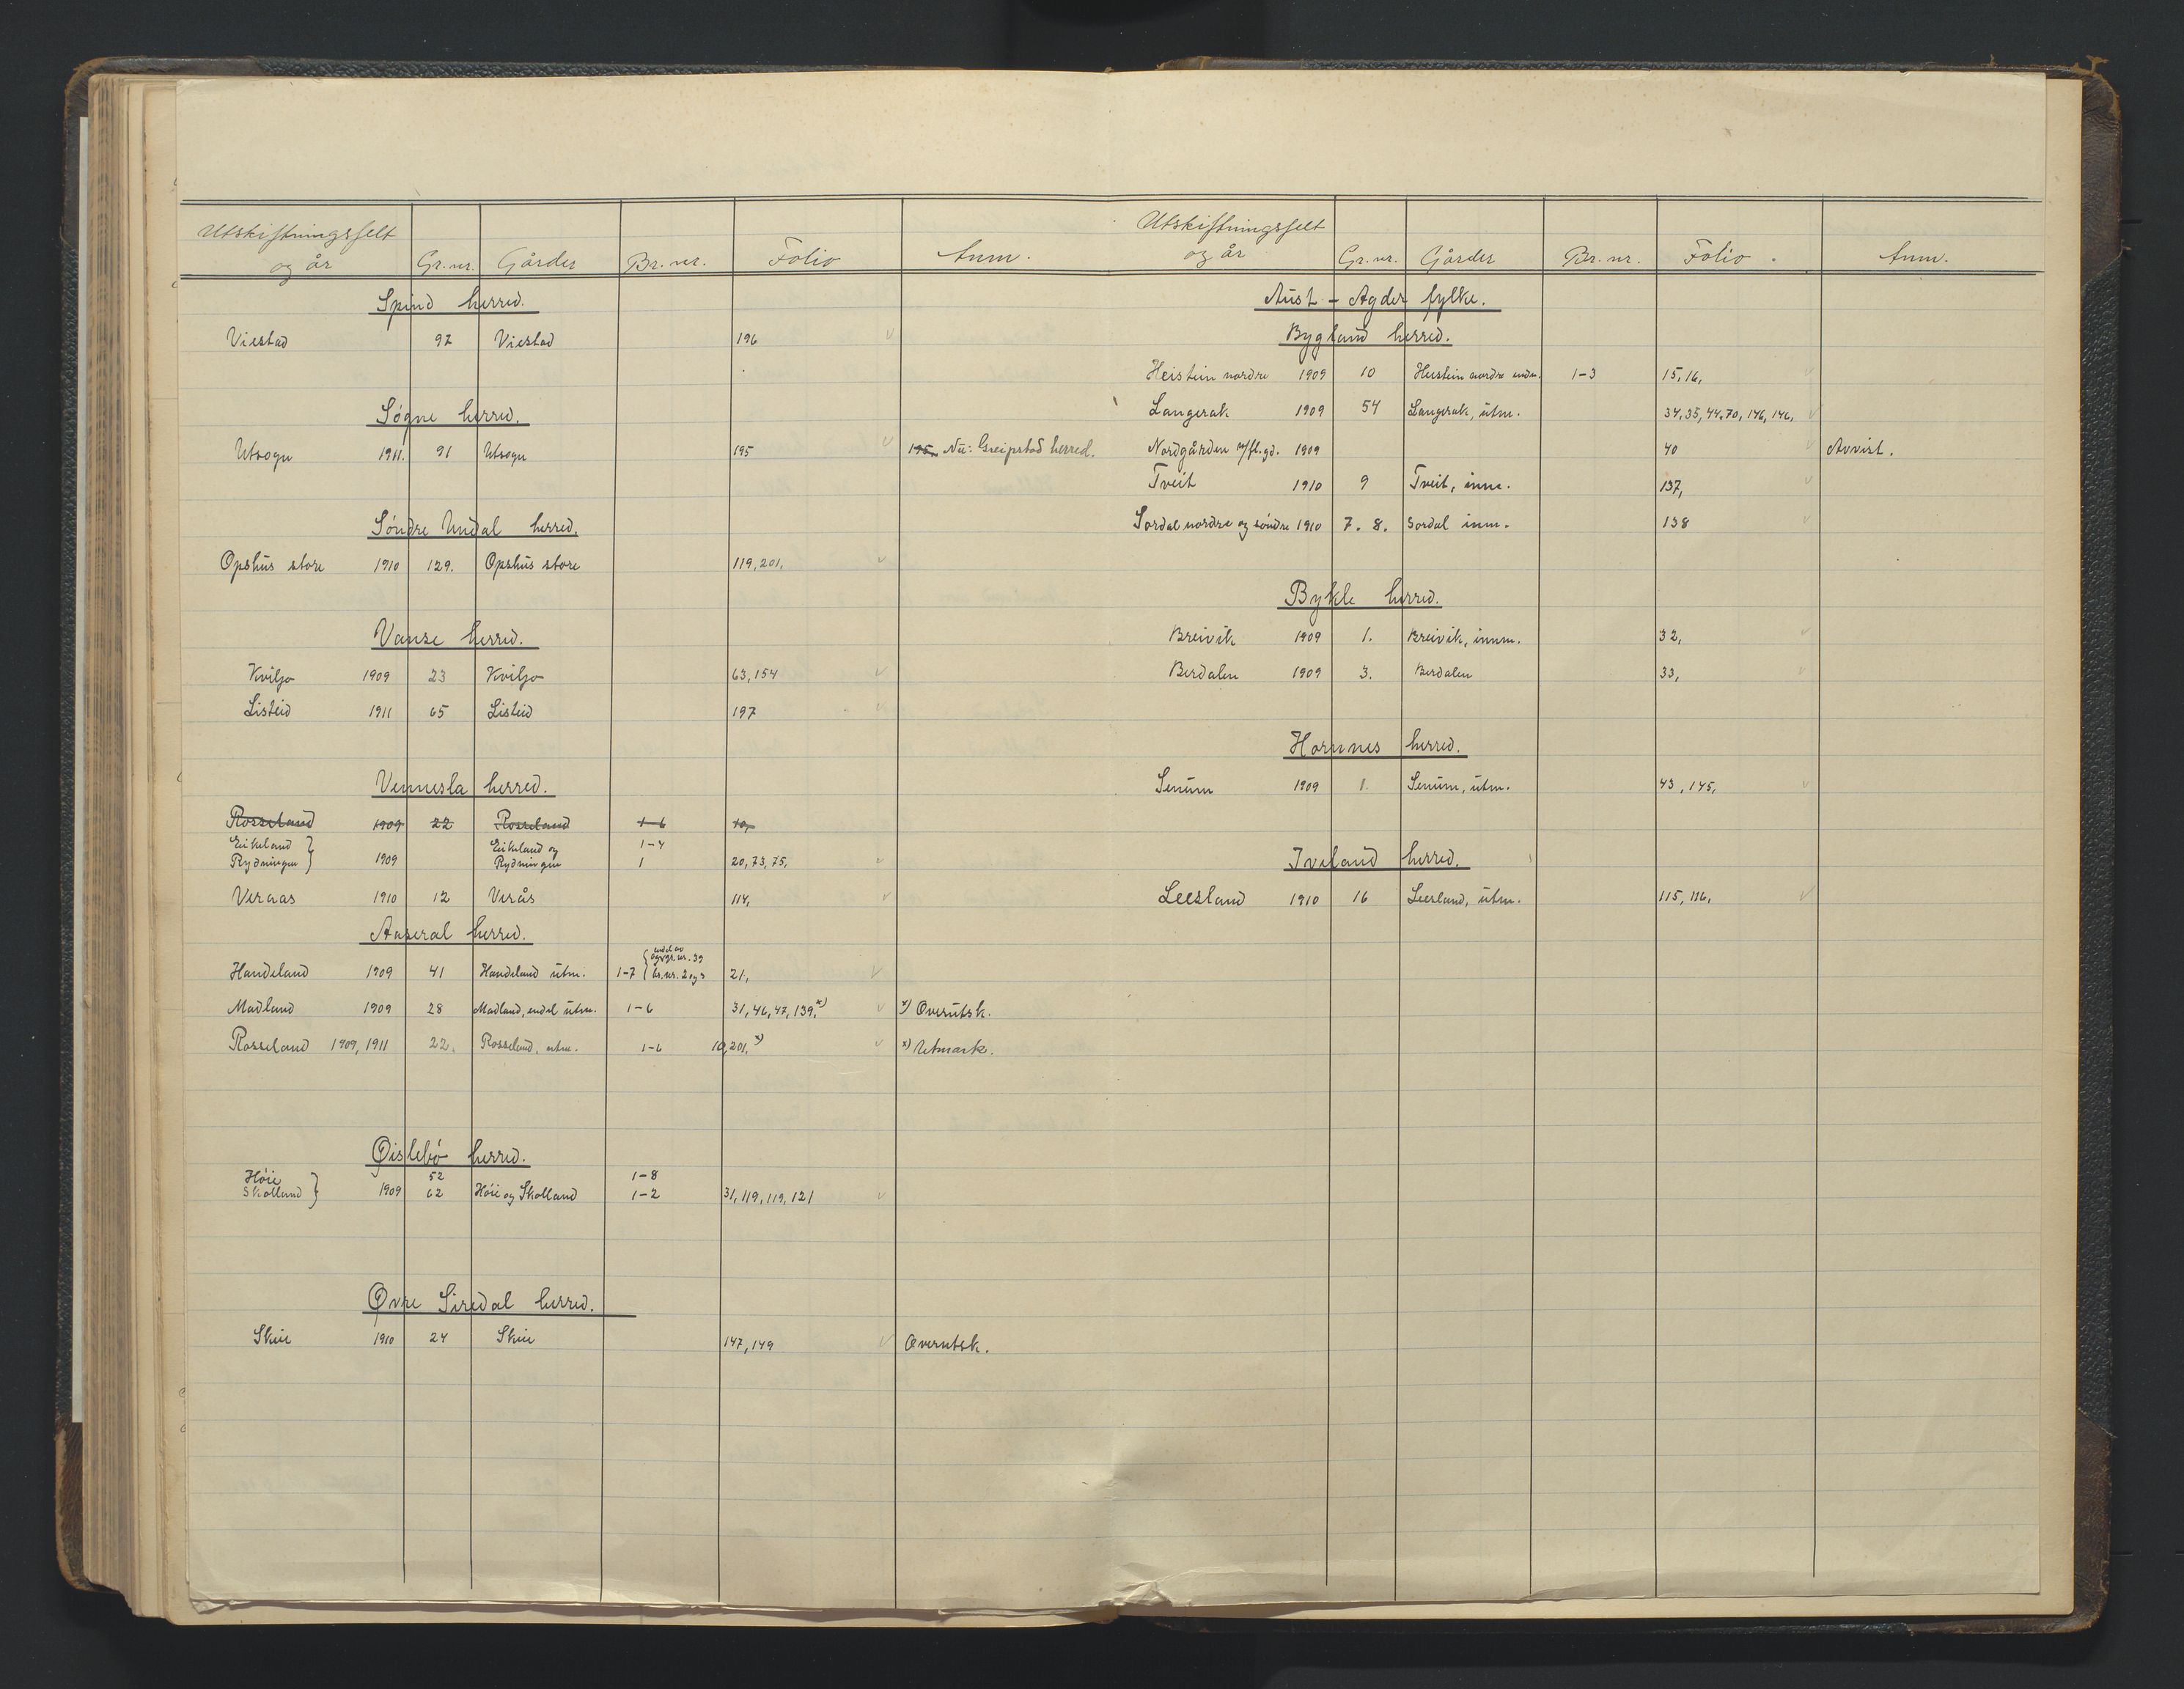 Utskiftningsfelt
og år Gr.nr. Gårder Br.nr. Folio Anm.
Spind herred.
Viestad 97 Viestad 196
Søgne herred.
Utsogn 1911. 91 Utsogn 195 195, Nu: Greipstad herred.
Søndre Undal herred.
Opshus store 1910 129. Opshus store 119, 201.
Vanse herred.
Kviljo 1909 23 Kviljo 63, 154
Listeid 1911 65 Listeid 197
Vennesla herred.
Rosseland 1909 22 Rosseland 1-6 10,
Eikeland } Eikeland og 1-4
Rydningen } 1909 Rydningen 1 20, 73, 75,
Veraas 1910 12 Verås 114,
Aaseral herred.
Handeland 1909 41 Handeland utm. 1-7 { br.nr. 2 og 3 21,
Madland 1909 28 Madland, endel utm. 1-6 31, 46, 47, 139. x) x) Overutsk.
Rosseland 1909, 1911 22. Rosseland, utm. 1-6 10, 201. x) x) Utmark.
Øislebø herred.
Høie 52 1-8
Skolland } 1909 62 Høie og Skolland 1-2 31, 119, 119, 121
Øvre Siredal herred.
Skeie 1910 24 Skeie 147, 149 Overutsk.
Utskiftningsfelt
og år Gr.nr. Gårder Br.nr. Folio . Anm.
Aust-Agder fylke.
Bygland herred.
Heistein nordre 1909 10 Heistein nordre 1-3 15, 16,
Langerak 1909 54 Langerak, utm. 34, 35, 44, 70, 146, 146,
Nordgården m/fl.gd. 1909 40 Avvist.
Tveit 1910 9 Tveit, inm. 137,
Sordal nordre og søndre 1910 7. 8. Sordal inm. 138
Bykle herred.
Breivik 1909 1. Breivik, innm. 32,
Berdalen 1909 3. Berdalen 33,
Hornnes herred.
Senum 1909 1. Senum, utm. 43, 145,
Iveland herred.
Leesland 1910 16 Leesland, utm. 115, 116,